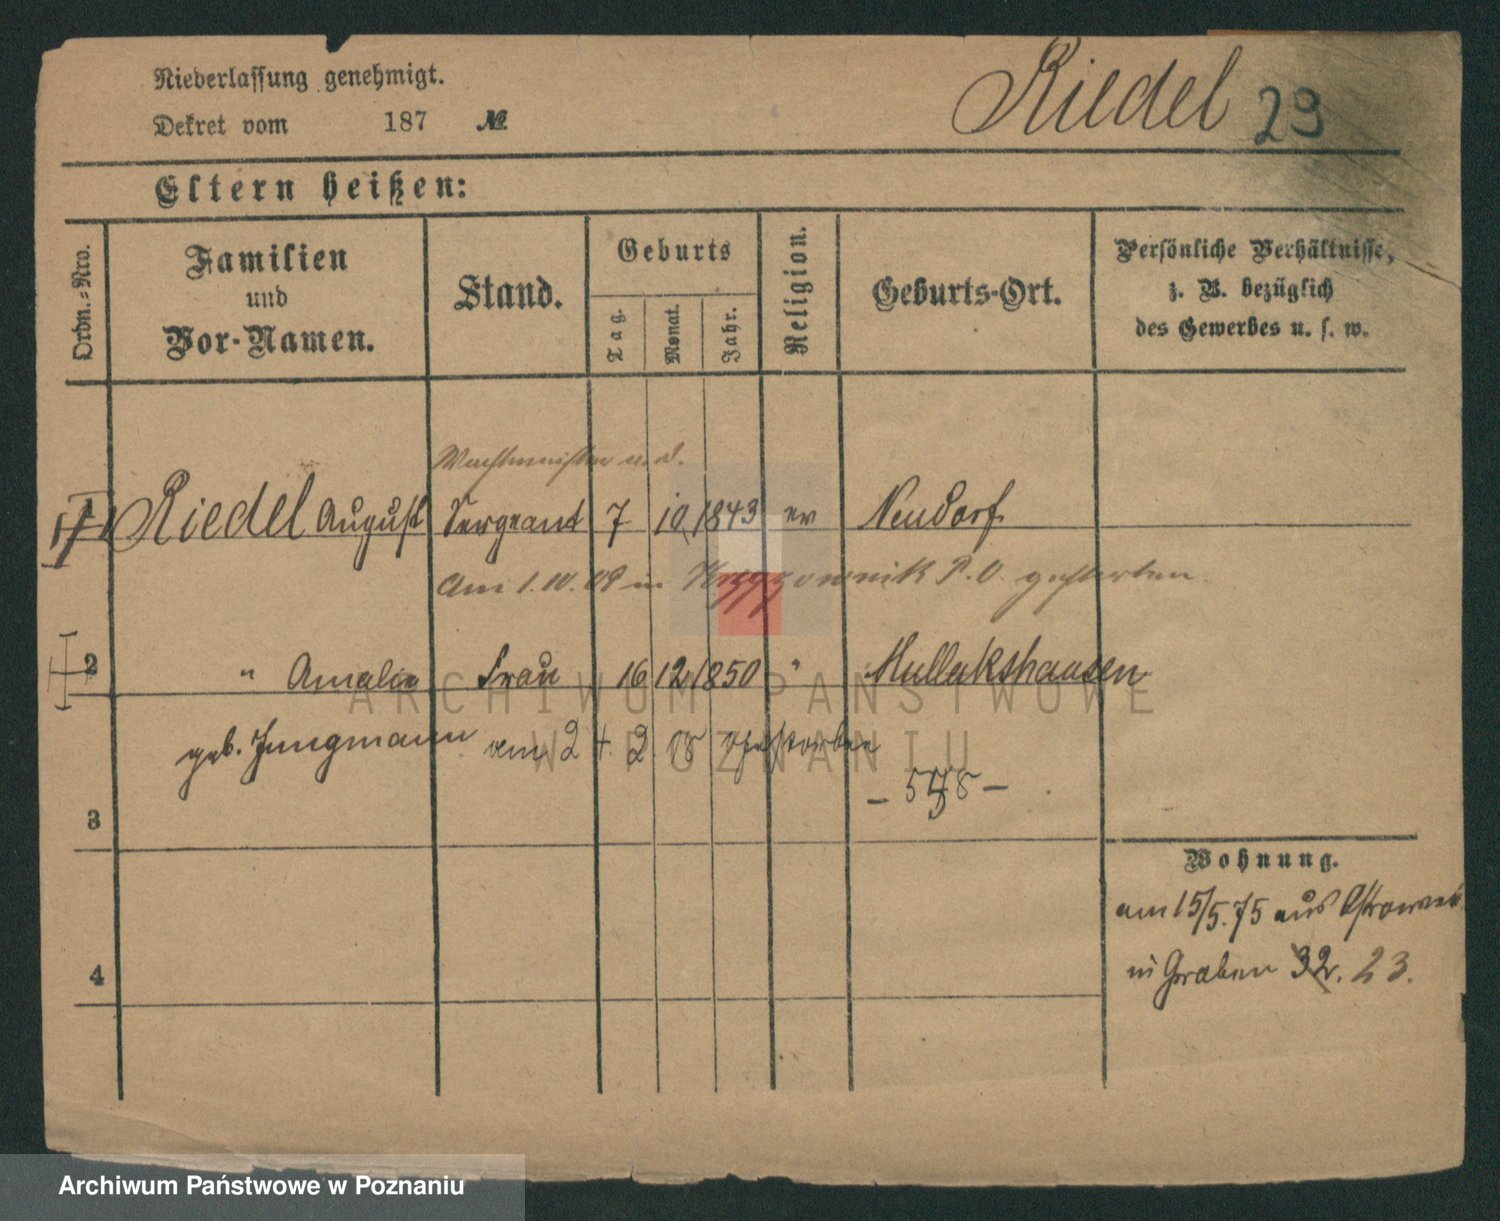 Niederlassung genehmigt.
Dekret vom 187 №
Riedel 23
Eltern heißen:
Ordn.-Nro.
Familien
und
Vor-Namen.
Stand.
Geburts
Tag.
Monat.
Jahr.
Religion.
Geburts-Ort.
Persönliche Verhältnisse,
z. B. bezüglich
des Gewerbes u. s. w.
Wachtmeister a. d.
1 Riedel August Sergeant 7 10 1843 ev Neudorf
Am 1. 10. 09 in P. O. gestorben
2 " Amalie Frau 16 12 1850 " Mullakshausen
geb. Jungmann am 24. 2. 08 gestorben
3
Wohnung.
am 15/5.75 aus Ostrowo
in Graben 32. 23.
4
ARCHIWUM PAŃSTWOWE
W POZNANIU
Archiwum Państwowe w Poznaniu